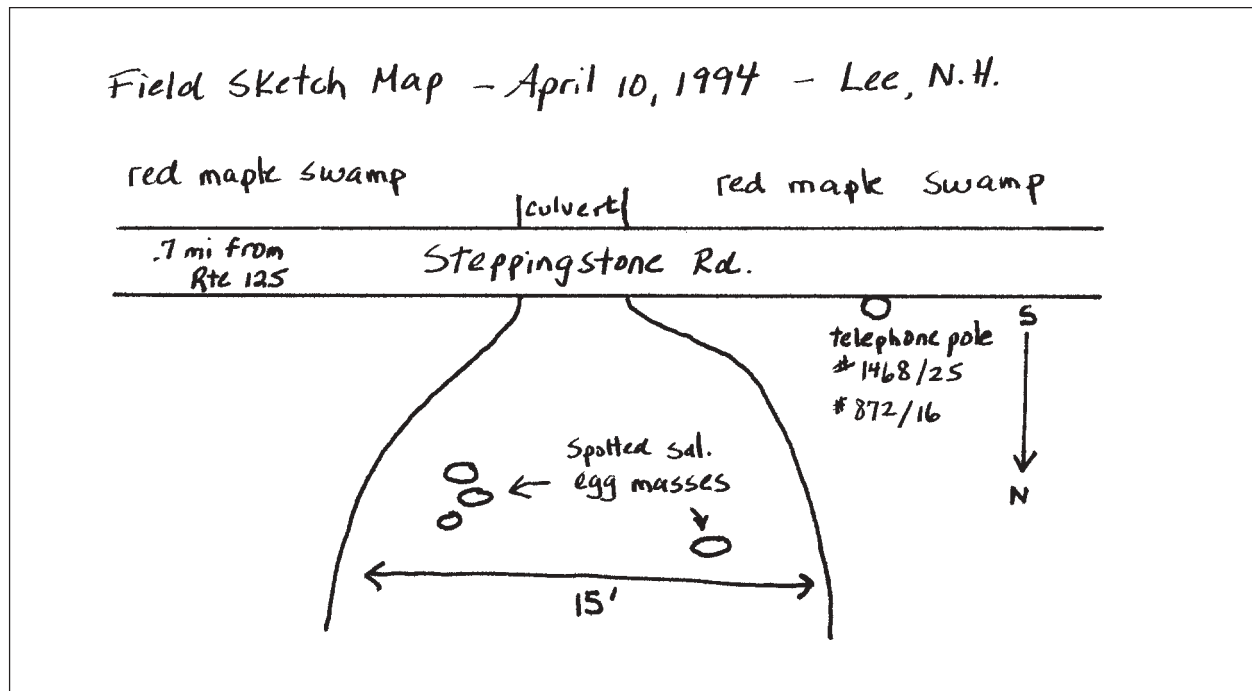 Field Sketch Map - April 10, 1994 - Lee, N.H.
red maple swamp
red maple swamp
culvert
.7 mi from
Rte 125
Steppingstone Rd.
telephone pole
#1468/25
#872/16
S
N
Spotted sal.
egg masses
15'